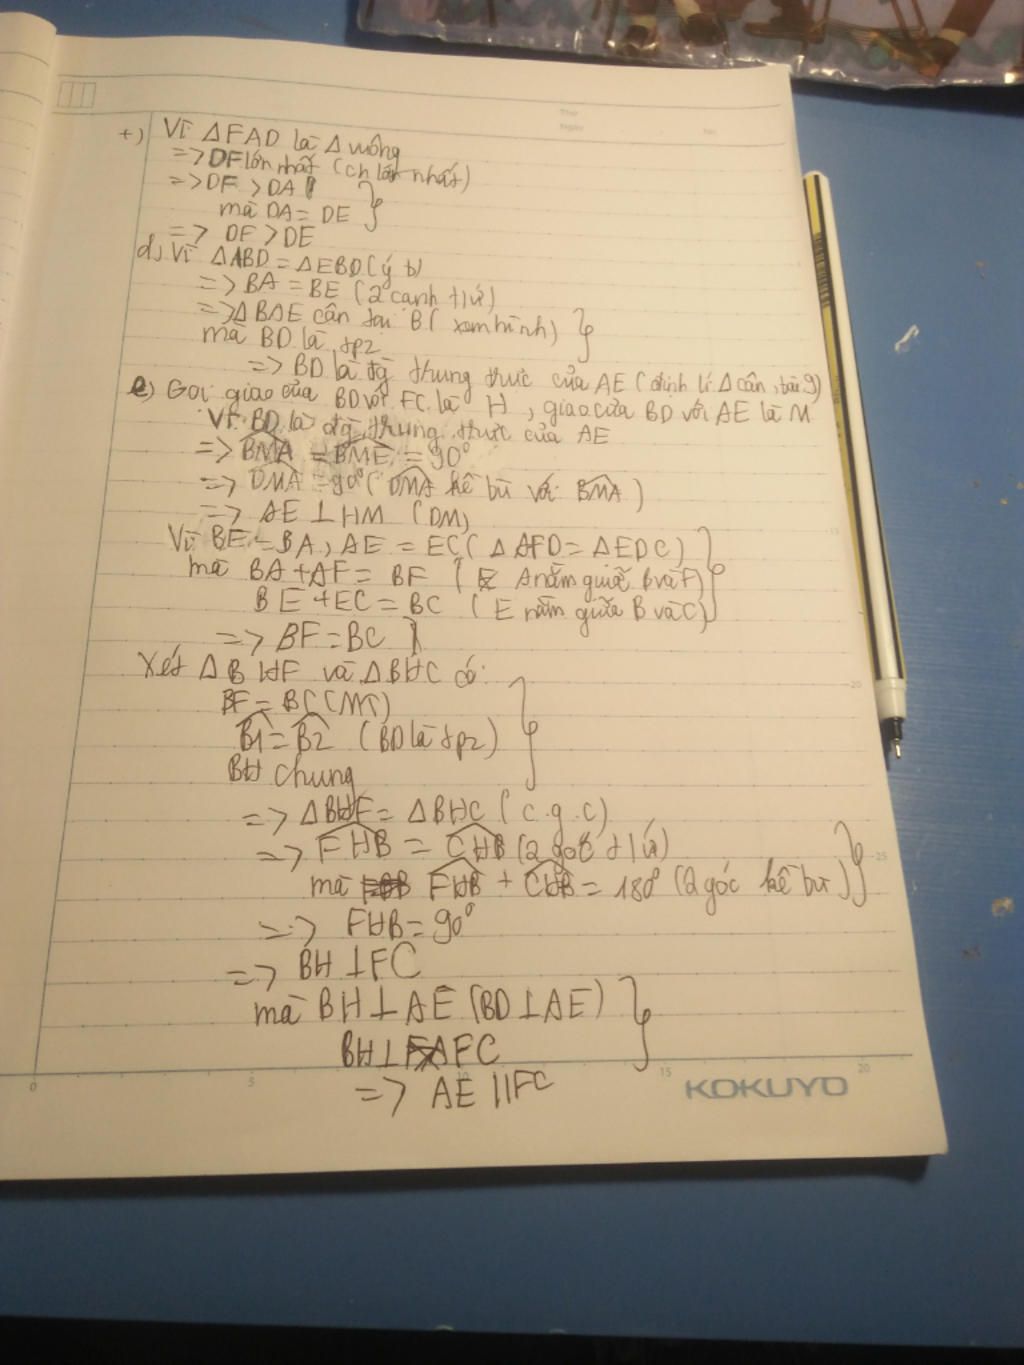 Thứ
Ngày
No.
+) Vì Δ FAD là Δ vuông
=> DF lớn nhất (ch lớn nhất)
=> DF > DA
mà DA = DE
=> DF > DE
d, Vì Δ ABD = Δ EBD (ý b)
=> BA = BE (2 cạnh t/ứ)
=> Δ BAE cân tại B (xem hình)
mà BD là tpz
=> BD là đg trung trực của AE (định lí Δ cân, bài 9)
e) Gọi giao của BD với FC là H, giao của BD với AE là M
Vì BD là đg trung trực của AE
=> BMA = BME = 90°
=> DMA = 90° (DMA kề bù với BMA)
=> AE ⊥ HM (DM)
Vì BE = BA, AE = EC (Δ AFD = Δ EDC)
mà BA + AF = BF ( A nằm giữa B và F)
BE + EC = BC (E nằm giữa B và C)
=> BF = BC
Xét Δ BHF và Δ BHC có:
BF = BC (MT)
B1 = B2 (BD là tpz)
BH chung
=> Δ BHF = Δ BHC (c.g.c)
=> FHB = CHB (2 góc t/ứ)
mà FHB + CHB = 180° (2 góc kề bù)
=> FHB = 90°
=> BH ⊥ FC
mà BH ⊥ AE (BD ⊥ AE)
BH ⊥ FC
=> AE // FC
0 5 10 15 20
KOKUYO
15
20
25